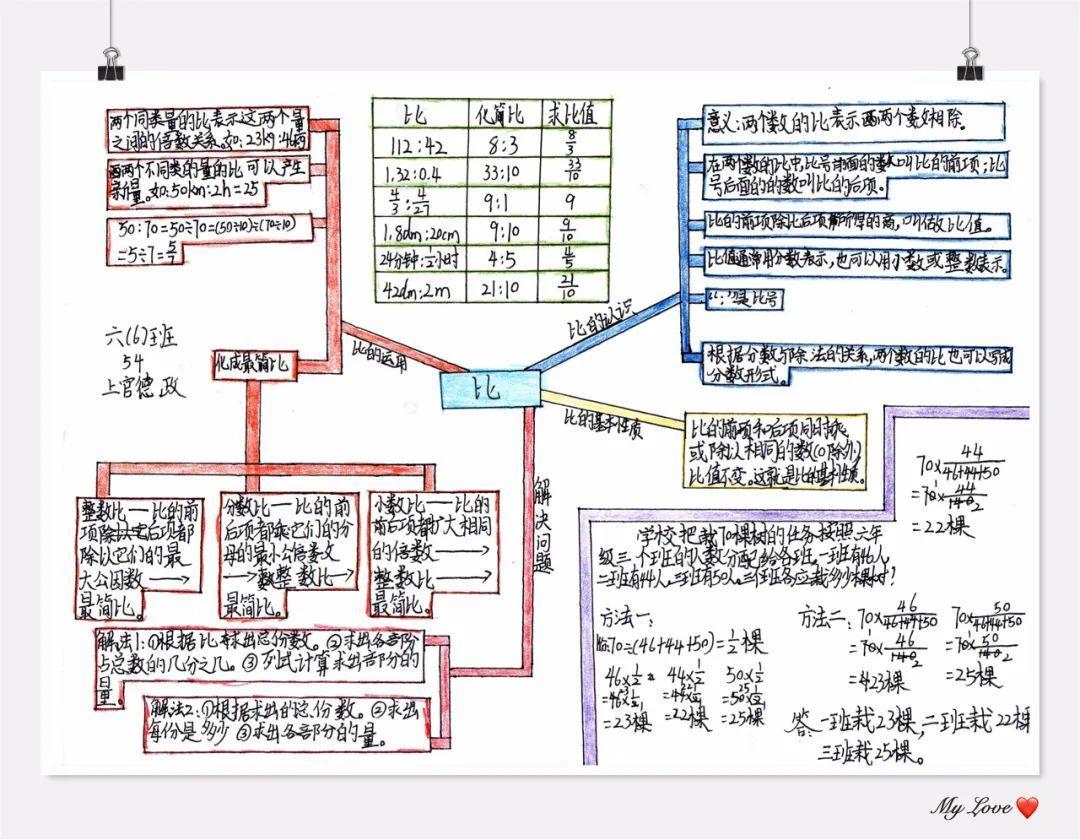 两个同类量的比表示这两个量
之间的倍数关系。如:23kg:46
两个不同类的量的比可以产生
新量。如:50km:2h=25
50:70=50÷70=(50÷10)÷(70÷10)
=5÷7=5/7
六(6)班
54
上官德政
化成最简比
比的运用
比 化简比 求比值
112:42 8:3 8/3
1.32:0.4 33:10 33/10
4/3:4/27 9:1 9
1.8dm:20cm 9:10 9/10
24分钟:1/2小时 4:5 4/5
42dm:2m 21:10 21/10
比的认识
比
比的基本性质
意义:两个数的比表示两个数相除。
在两个数的比中,比号前面的数叫比的前项;比
号后面的的数叫比的后项。
比的前项除比后项所得的商,叫做比值。
比值通常用分数表示,也可以用小数或整数表示。
“:”是比号
根据分数与除法的关系,两个数的比也可以写成
分数形式。
比的前项和后项同时乘
或除以相同的数(0除外)
比值不变。这就是比的基本性质。
整数比—比的前
项除以后项都
除以它们的最
大公因数→
最简比。
分数比—比的前
后项都乘它们的分
母的最小公倍数
→整数比→
最简比。
小数比—比的
前后项都扩大相同
的倍数→
整数比→
最简比。
解决问题
解法1:①根据比求出总份数。②求出各部分
占总数的几分之几。③列式计算求出各部分的
量。
解法2:①根据求出的总份数。②求出
每份是多少③求出各部分的量。
学校把栽70棵树的任务按照六年
级三个班的人数分配给各班,一班有46人,
二班有44人,三班有50人。三个班各应栽多少棵树?
方法一:
70÷(46+44+50)=1/2棵
46×1/2 44×1/2 50×1/2
=46×1/2 =44×1/2 =50×1/2
=23棵 =22棵 =25棵
方法二:70×46/46+44+50
=70×46/140
=423棵
70×50/46+44+50
=70×50/140
=25棵
70×44/46+44+50
=70×44/140
=22棵
答:一班栽23棵,二班栽22棵
三班栽25棵。
My Love